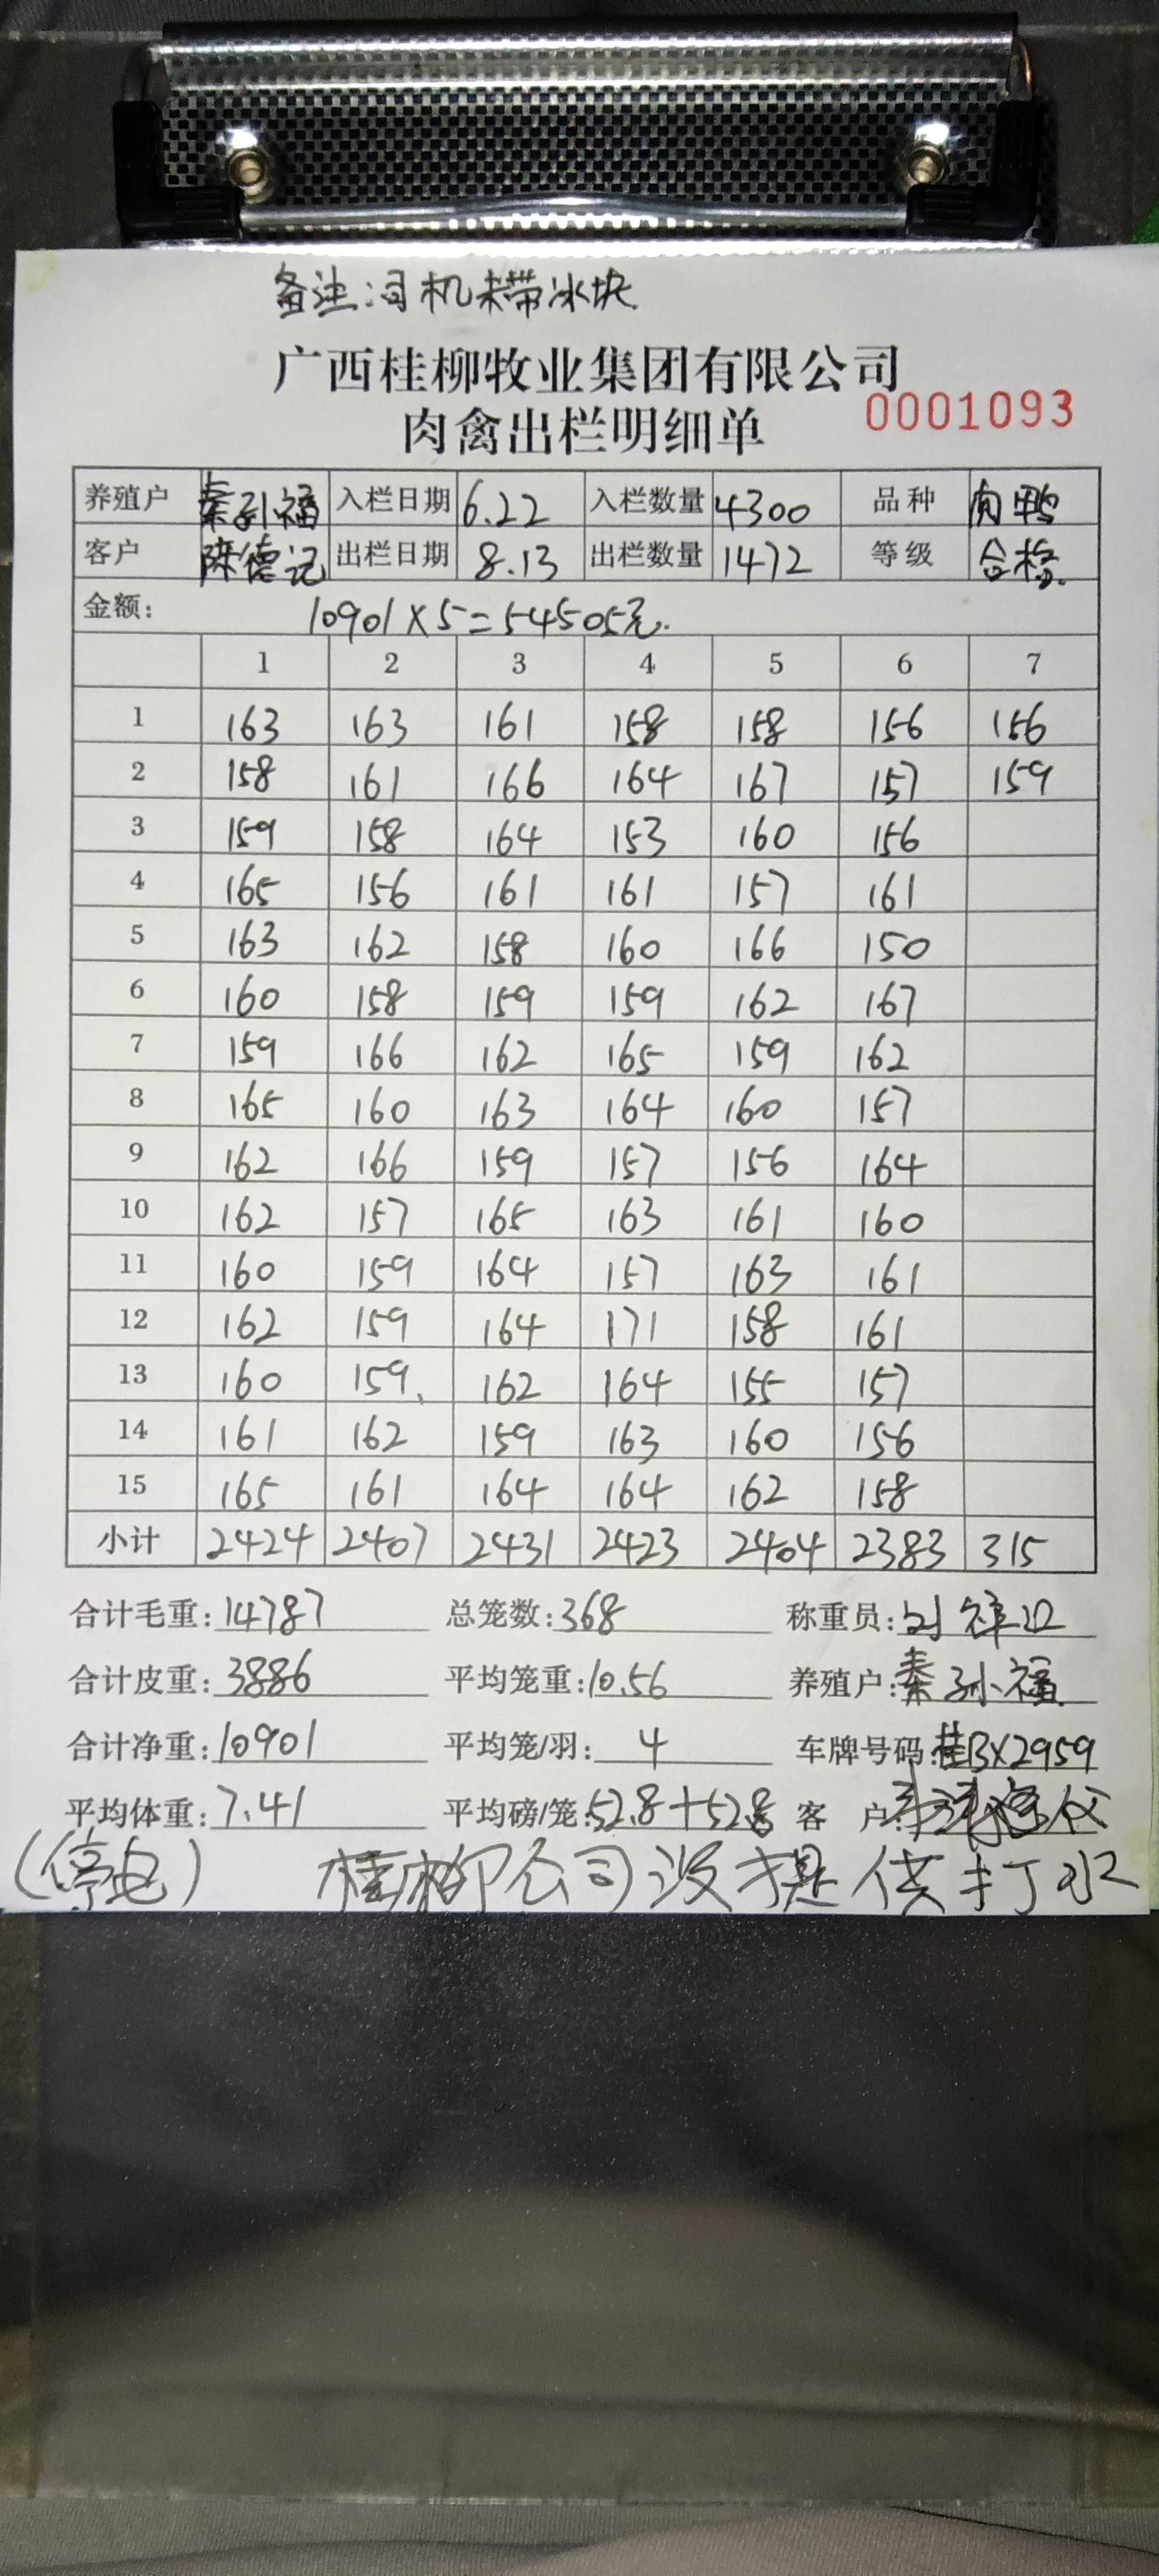 备注:司机未带冰块
广西桂柳牧业集团有限公司
肉禽出栏明细单 0001093
养殖户 秦孙福 入栏日期 6.22 入栏数量 4300 品种 肉鸭
客户 陈德记 出栏日期 8.13 出栏数量 1472 等级 合格.
金额: 10901×5=54505元.
1 2 3 4 5 6 7
1 163 163 161 158 158 156 156
2 158 161 166 164 167 157 159
3 159 158 164 153 160 156
4 165 156 161 161 157 161
5 163 162 158 160 166 150
6 160 158 159 159 162 167
7 159 166 162 165 159 162
8 165 160 163 164 160 157
9 162 166 159 157 156 164
10 162 157 165 163 161 160
11 160 159 164 157 163 161
12 162 159 164 171 158 161
13 160 159、 162 164 155 157
14 161 162 159 163 160 156
15 165 161 164 164 162 158
小计 2424 2407 2431 2423 2404 2383 315
合计毛重:14787 总笼数:368 称重员:
合计皮重:3886 平均笼重:10.56 养殖户:秦孙福
合计净重:10901 平均笼/羽: 4 车牌号码:桂BX2959
平均体重:7.41 平均磅/笼:52.8+52.8 客 户:
(停电) 桂柳公司没提供打水